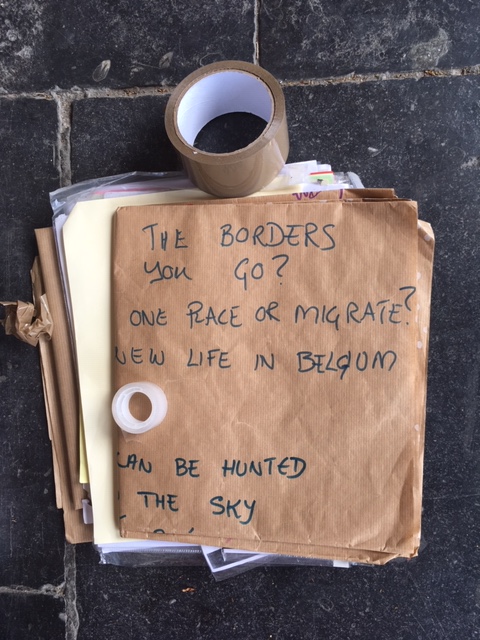 THE BORDERS
YOU GO?
ONE PLACE OR MIGRATE?
NEW LIFE IN BELGIUM
AN BE HUNTED
THE SKY